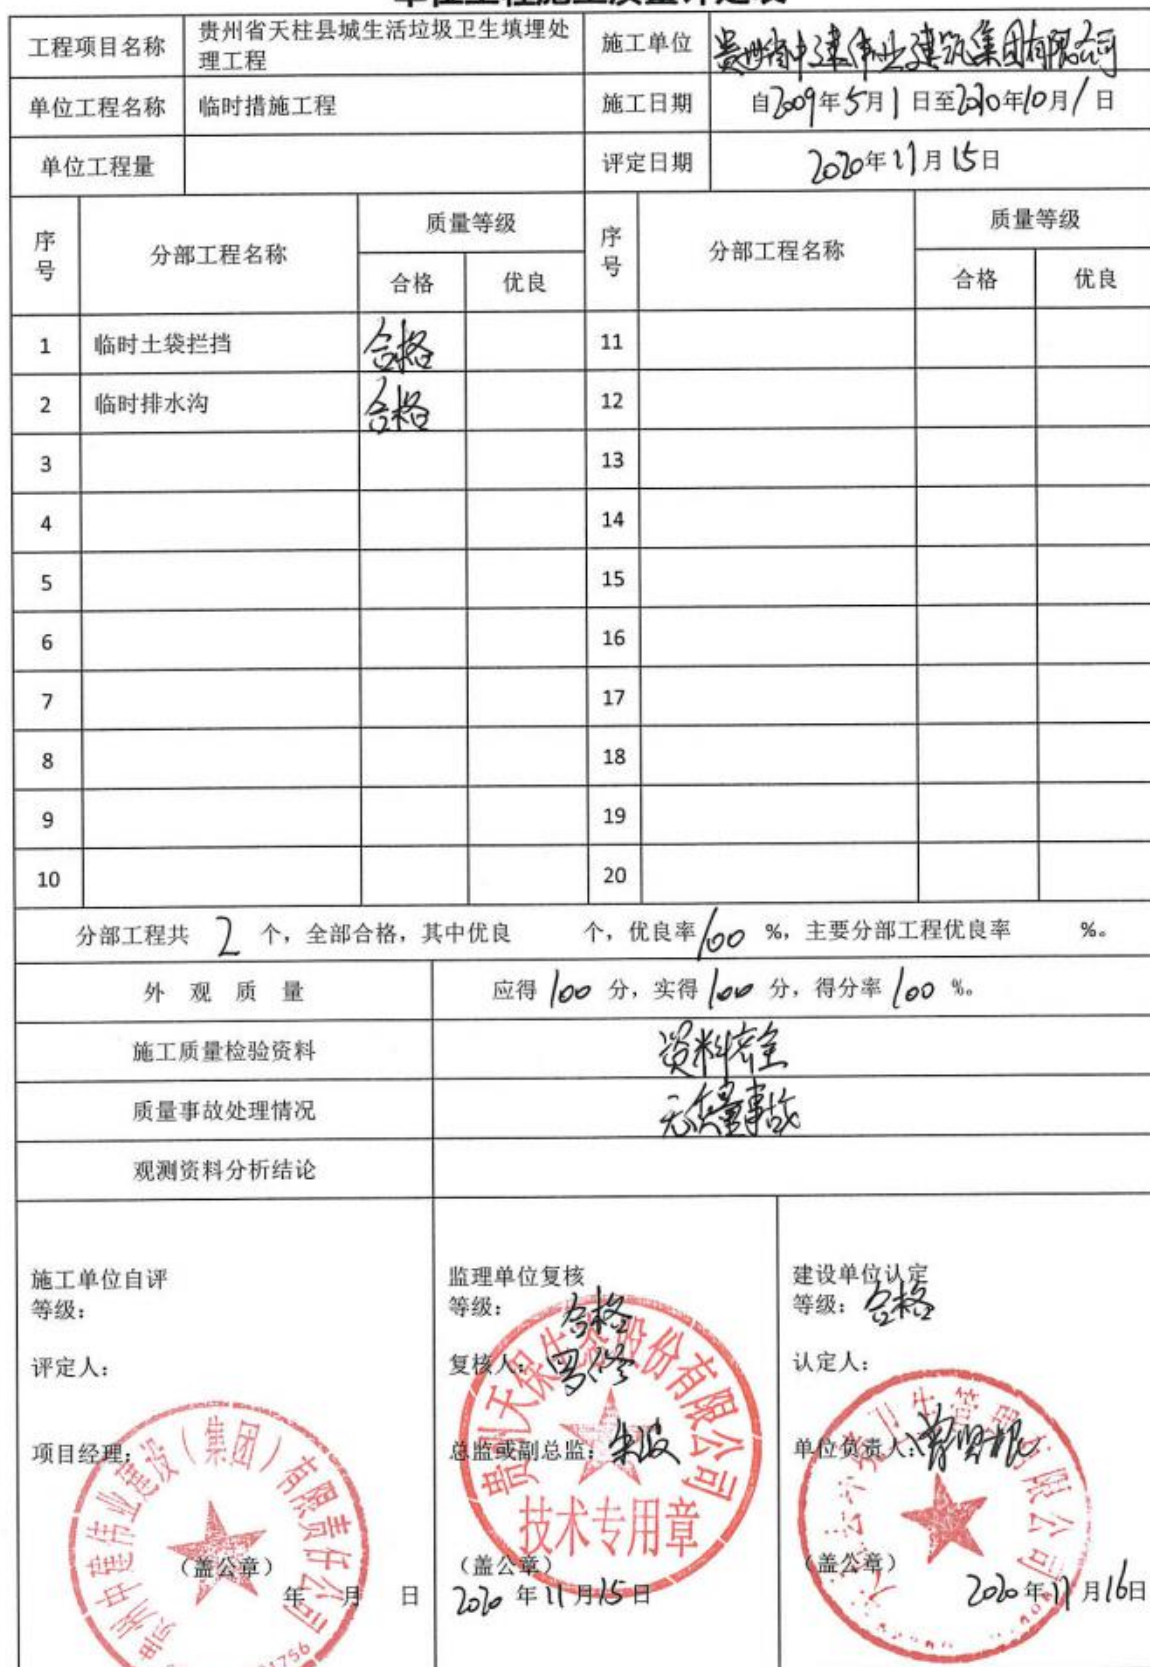 单位工程施工质量评定表
工程项目名称 贵州省天柱县城生活垃圾卫生填埋处理工程 施工单位 贵州省中建伟业建筑集团有限公司
单位工程名称 临时措施工程 施工日期 自2009年5月1日至2020年10月1日
单位工程量 评定日期 2020年11月15日
序号 分部工程名称 质量等级 序号 分部工程名称 质量等级
合格 优良 合格 优良
1 临时土袋拦挡 合格 11
2 临时排水沟 合格 12
3 13
4 14
5 15
6 16
7 17
8 18
9 19
10 20
分部工程共 2 个，全部合格，其中优良 个，优良率100 %，主要分部工程优良率 %。
外观质量 应得 100 分，实得 100 分，得分率 100 %。
施工质量检验资料 资料齐全
质量事故处理情况 无质量事故
观测资料分析结论
施工单位自评
等级：
评定人：
项目经理：
（盖公章）
年 月 日
贵州中建伟业建设（集团）有限责任公司
监理单位复核
等级： 合格
复核人：
总监或副总监： 朱波
（盖公章）
2020 年 11 月 15 日
贵州天保生态股份有限公司
技术专用章
建设单位认定
等级：合格
认定人：
单位负责人：
（盖公章）
2020年11月16日